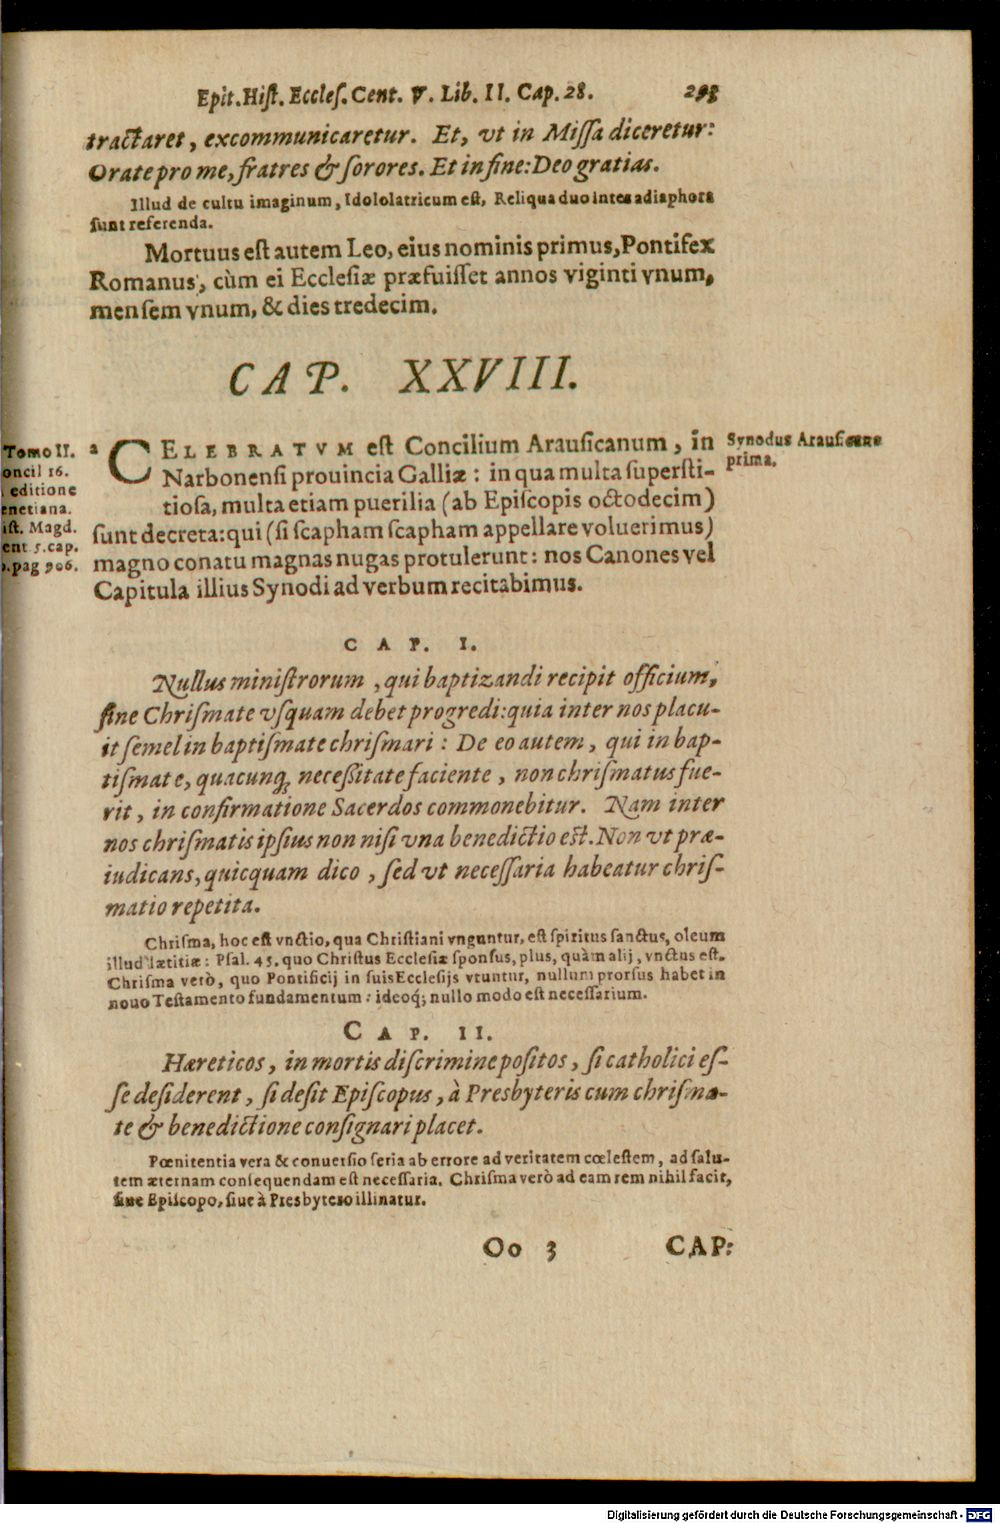 Epit. Hiſt. Eccleſ. Cent. V. Lib. II. Cap. 28. 293
tractaret, excommunicaretur. Et, vt in Miſſa diceretur:
Orate pro me, fratres & ſorores. Et in fine: Deo gratias.
Illud de cultu imaginum, Idololatricum eſt, Reliqua duo inter adiaphora
ſunt referenda.
Mortuus eſt autem Leo, eius nominis primus, Pontifex
Romanus, cùm ei Eccleſiæ præfuiſſet annos viginti vnum,
menſem vnum, & dies tredecim.
CAP. XXVIII.
Tomo II.
oncil 16.
editione
enetiana.
iſt. Magd.
ent 5. cap.
pag 906.
a CELEBRATVM eſt Concilium Arauſicanum, in
Narbonenſi prouincia Galliæ: in qua multa ſuperſti-
tioſa, multa etiam puerilia (ab Epiſcopis octodecim)
ſunt decreta: qui (ſi ſcapham ſcapham appellare voluerimus)
magno conatu magnas nugas protulerunt: nos Canones vel
Capitula illius Synodi ad verbum recitabimus.
Synodus Arauſicana
prima.
CAP. I.
Nullus miniſtrorum, qui baptizandi recipit officium,
ſine Chriſmate vſquam debet progredi: quia inter nos placu-
it ſemel in baptiſmate chriſmari: De eo autem, qui in bap-
tiſmate, quacunq; neceßitate faciente, non chriſmatus fue-
rit, in confirmatione Sacerdos commonebitur. Nam inter
nos chriſmatis ipſius non niſi vna benedictio eſt. Non vt præ-
iudicans, quicquam dico, ſed vt neceſſaria habeatur chriſ-
matio repetita.
Chriſma, hoc eſt vnctio, qua Chriſtiani vnguntur, eſt ſpiritus ſanctus, oleum
illud lætitiæ: Pſal. 45. quo Chriſtus Eccleſiæ ſponſus, plus, quàm alij, vnctus eſt.
Chriſma verò, quo Pontificij in ſuis Eccleſijs vtuntur, nullum prorſus habet in
nouo Teſtamento fundamentum: ideoq; nullo modo eſt neceſſarium.
CAP. II.
Hæreticos, in mortis diſcrimine poſitos, ſi catholici eſ-
ſe deſiderent, ſi deſit Epiſcopus, à Presbyteris cum chriſma-
te & benedictione conſignari placet.
Pœnitentia vera & conuerſio ſeria ab errore ad veritatem cœleſtem, ad ſalu-
tem æternam conſequendam eſt neceſſaria. Chriſma verò ad eam rem nihil facit,
ſiue Epiſcopo, ſiue à Presbytero illinatur.
Oo 3 CAP:
Digitalisierung gefördert durch die Deutsche Forschungsgemeinschaft - DFG